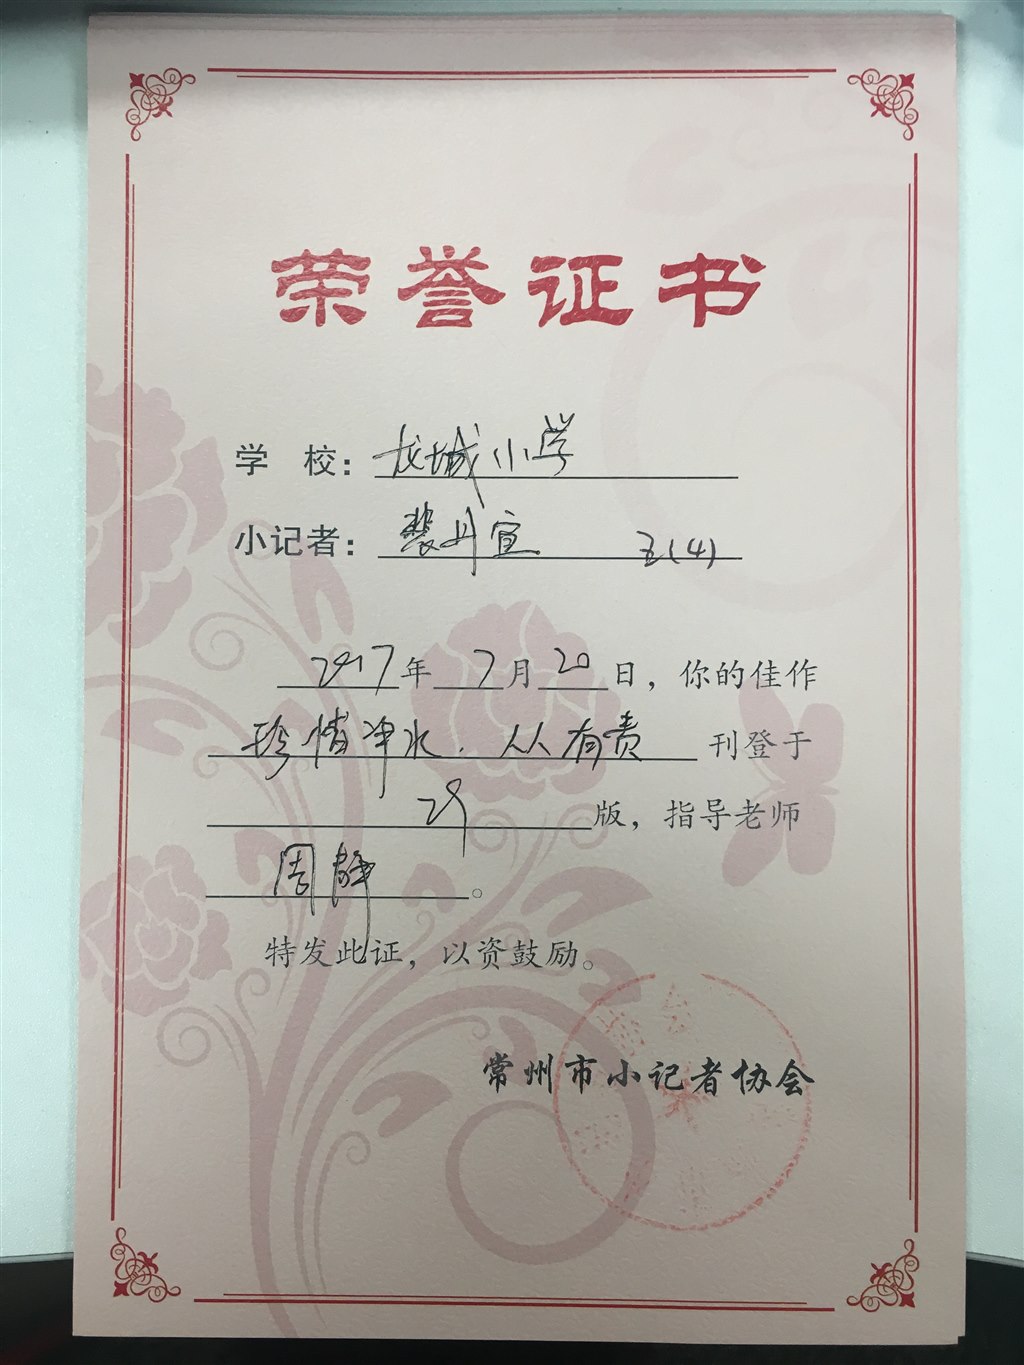 荣誉证书
学 校：龙城小学
小记者：裴丹宣 五(4)
2017年7月20日，你的佳作
珍惜净水，人人有责 刊登于
29版，指导老师
周静。
特发此证，以资鼓励。
常州市小记者协会